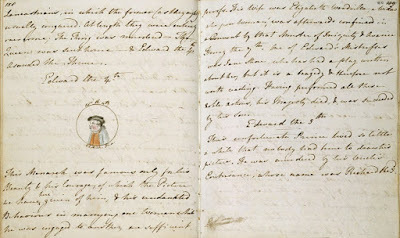 Lancastrians, in which the former (as they ought)
usually conquered. At length they were entirely
overcome. The King was murdered — The
Queen was sent home — & Edward the 4th
ascended the Throne.
Edward the 4th
This Monarch was famous only for his
Beauty & his Courage, of which the Picture
we have given of him, & his undaunted
Behaviour in marrying one Woman while
he was engaged to another, are sufficient
proofs. His Wife was Elizabeth Woodville, a Widow
who, poor Woman!, was afterwards confined in
a Convent by that Monster of Iniquity & Avarice
Henry the 7th. One of Edward's Mistresses
was Jane Shore, who has had a play written
about her, but it is a tragedy & therefore not
worth reading. Having performed all these
noble actions, his Majesty died, & was succeeded
by his Son.
Edward the 5th
This unfortunate Prince lived so little
a while that nobody had time to draw his
picture. He was murdered by his Uncle's
Contrivance, whose name was Richard the 3d.